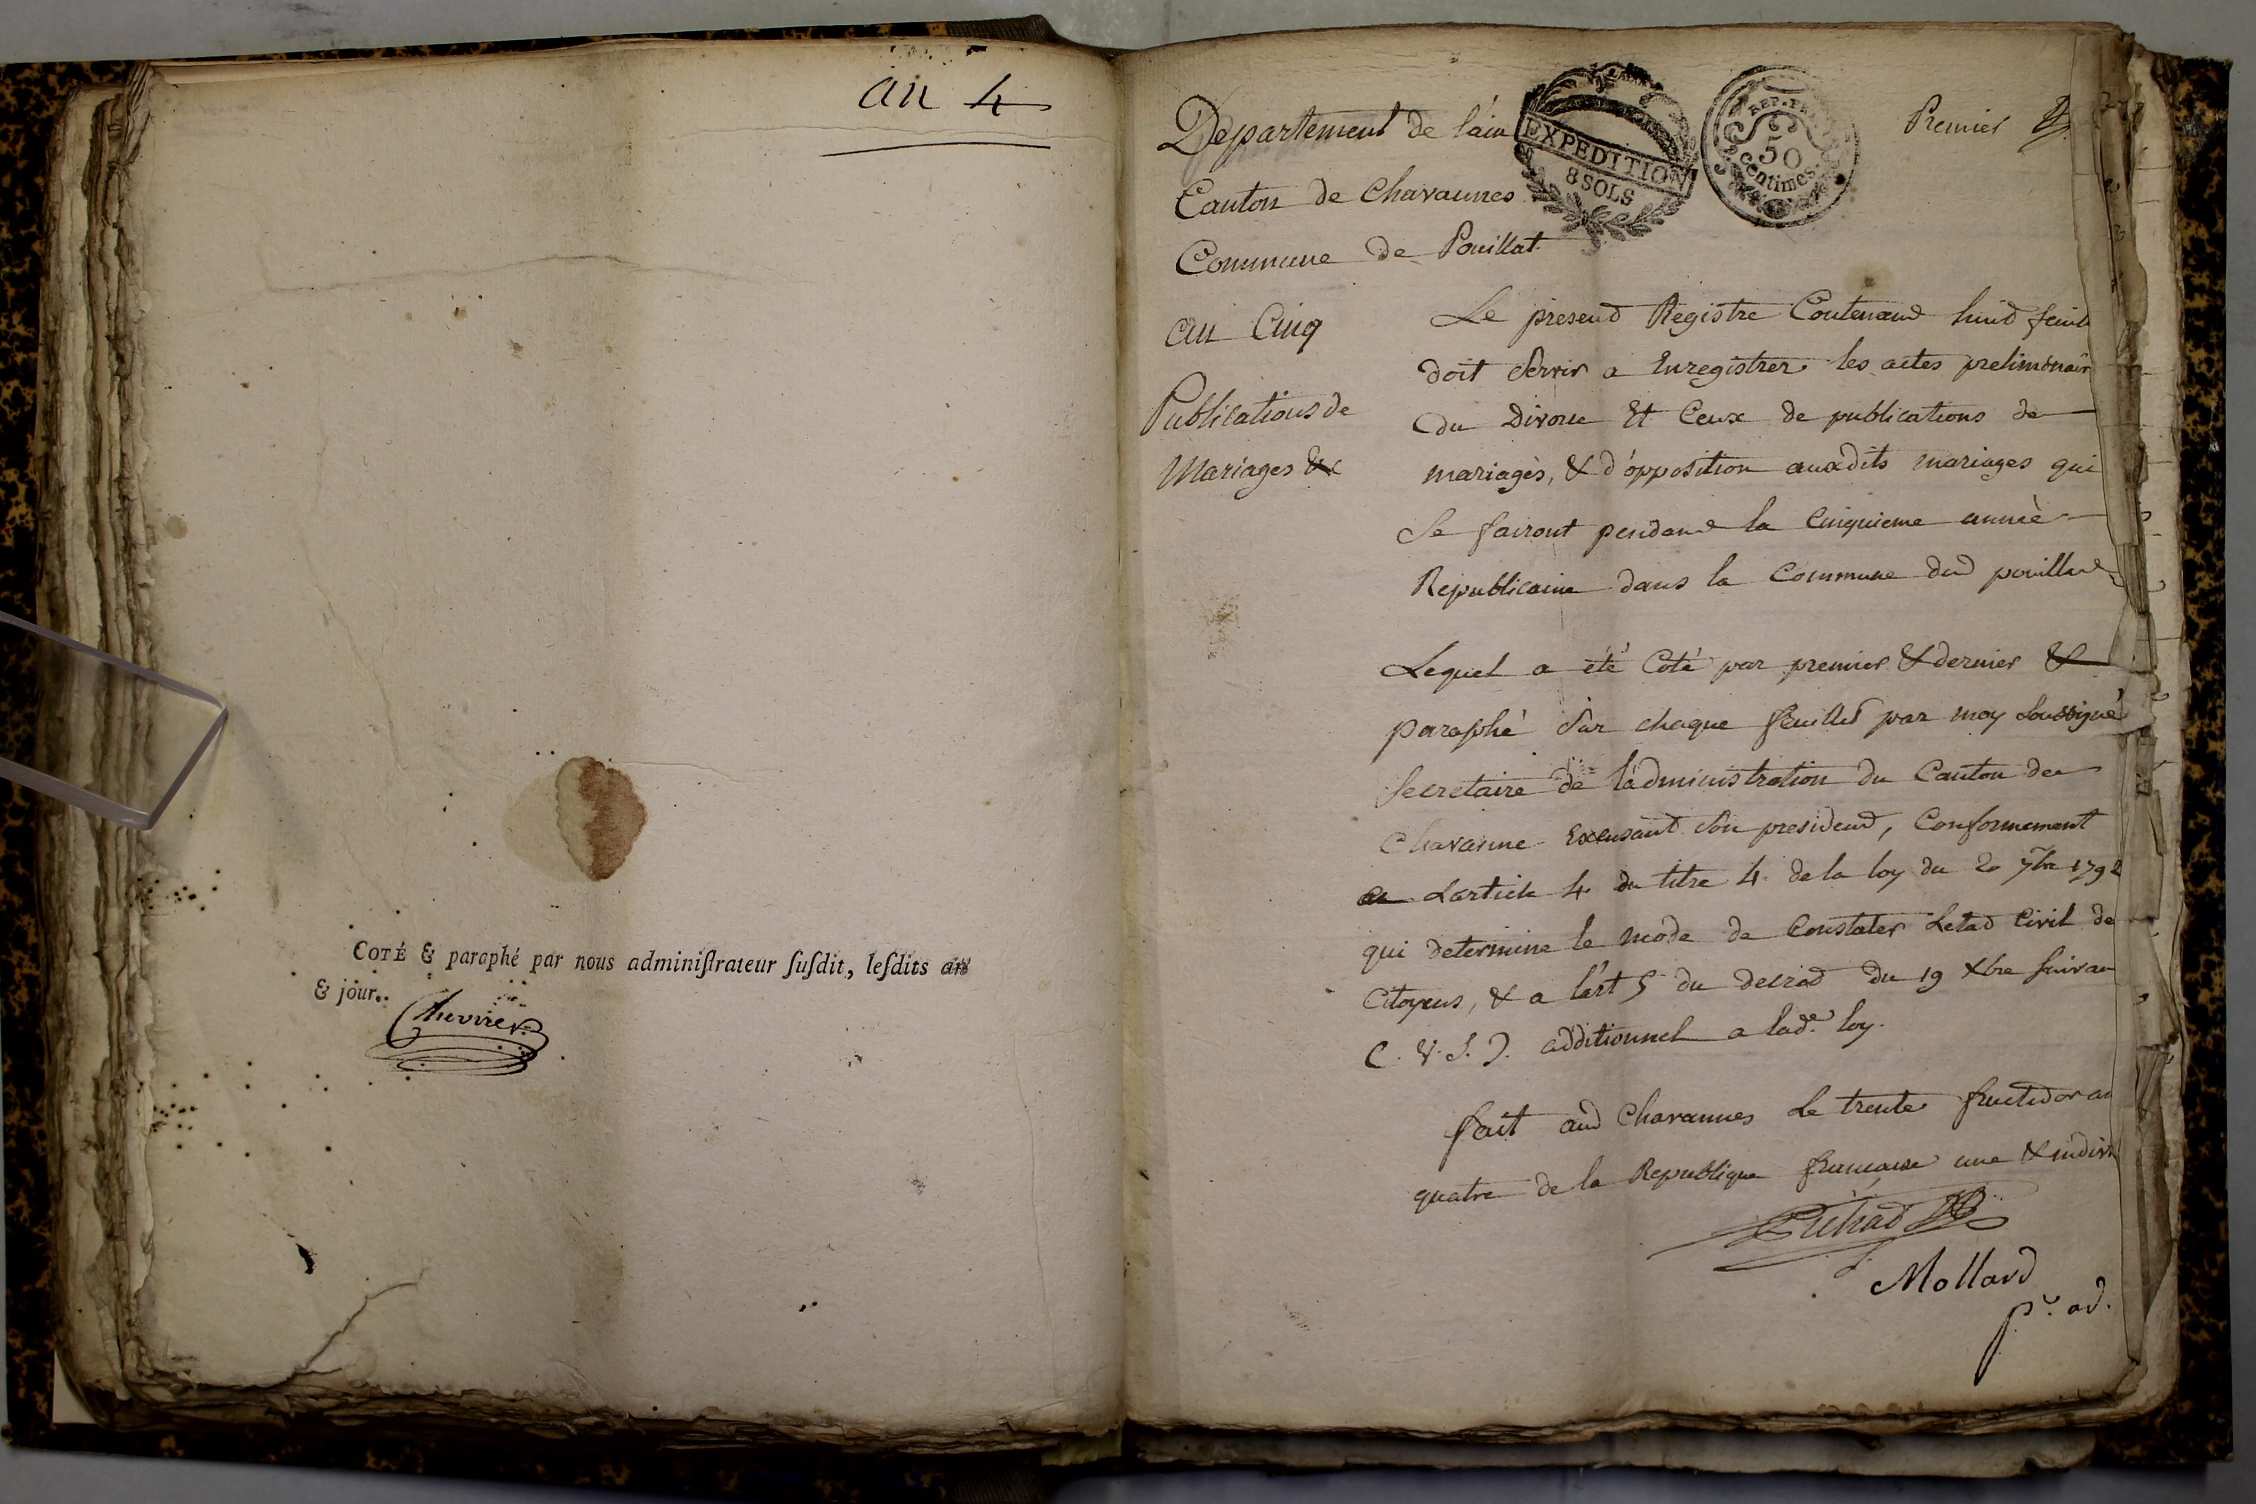 an 4
COTÉ & paraphé par nous adminiſtrateur ſuſdit, leſdits an
& jour..
Chevrier
Departement de l'ain
EXPEDITION
8 SOLS
REP. FR
50
centimes
Premier
Canton de Chavannes
Commune de Pouillat
an Cinq
Publications de
Mariages &c
Le presend Registre Contenand huid feuil
doit Servir a Enregistrer les actes preliminair
du Divorce Et Ceux de publications de
mariages, & d'opposition auxdits mariages qui
Se fairont pendand la Cinquieme année
Republicaine dans la Commune dud pouillad
Lequel a été Coté par premier & dernier &
paraphé Sur chaque feuilled par moy Soussigné
Secretaire de l'administration du Canton de
Chavanne Excusant Son presidend, Conformement
a Larticle 4 du titre 4 de la loy du 20 7bre 1792
qui determine le mode de Constater Letad Civil de
Citoyens, & a l'art 5 du decrad du 19 Xbre Suivan
C. V. S. additionnel a lade loy.
fait aud Chavannes Le trente fructidor an
quatre de la Republique francaise une & indivi
Mollard
pr. ad.